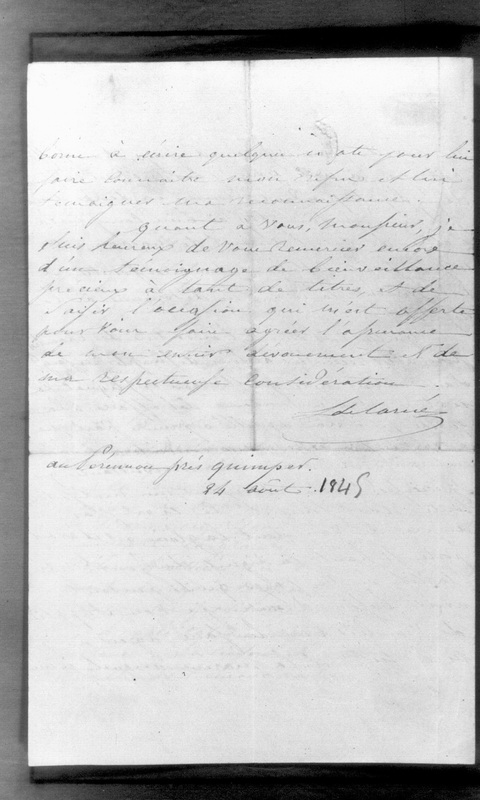 borne à écrire quelques mots pour lui
faire connaître mon refus et lui
témoigner ma reconnaissance.
quant à vous, monsieur, je
suis heureux de vous remercier encore
d'un témoignage de bienveillance
précieux à tant de titres, et de
saisir l'occasion qui m'est offerte
pour vous faire agréer l'assurance
de mon entier dévouement et de
ma respectueuse considération.
L de Carné
au Pérennou près quimper.
24 août 1845